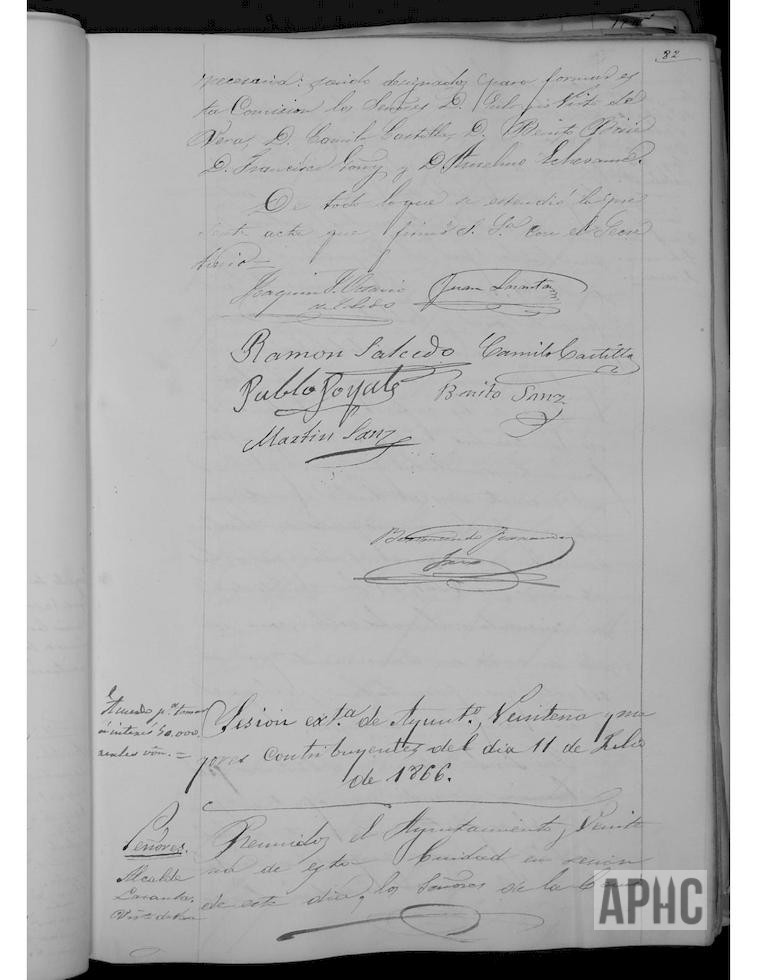 82
necesaria: siendo designados para formar es
ta Comision los Señores D. Vera, D. Camilo Castilla, D. Benito
D. Francisco Goñy y D. Anselmo Echevarria.
De todo lo que se estendió la pre
sente acta que firmó S. Sª con el Secre
tario=
Joaquin F. Octavio
de Toledo
Juan Laranta
Ramon Salcedo
Camilo Castilla
Pablo Poyales
Benito Sanz
Martin Sanz
Bermundo Fernandez
Sanz
Acuerdo pª tomar
á interés 40.000
reales von. =
Sesion extª de Ayuntº, Veintena y ma
yores contribuyentes del dia 11 de Julio
de 1866.
Señores.
Alcalde
Laranta
Reunidos el Ayuntamiento, Veinte
na de esta Ciudad en sesion
de este dia, los Señores de la
APHC